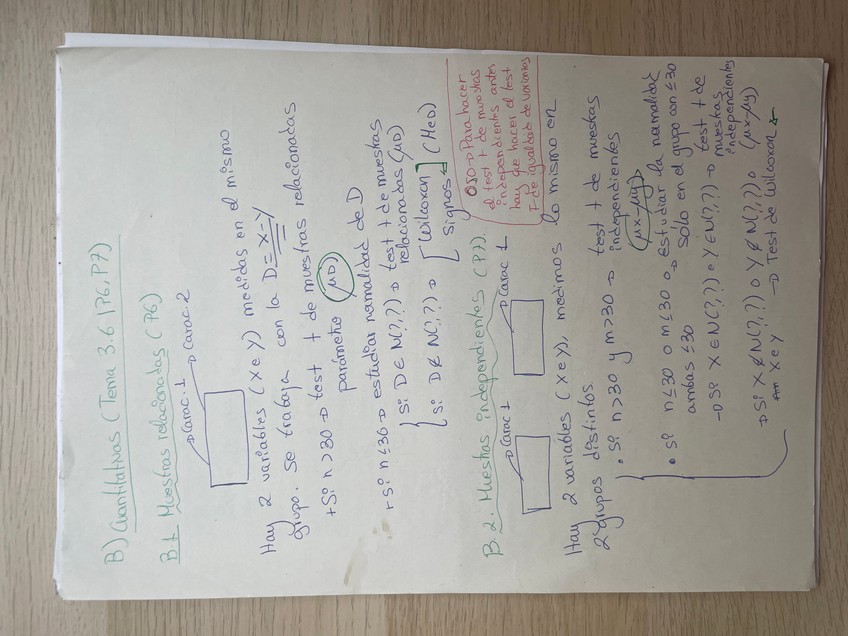 B) Cuantitativas (Tema 3.6 (P6, P7)
B.1 Muestras relacionadas (P6)
→ Carac. 1 → Carac. 2
Hay 2 variables (X e Y) medidas en el mismo
grupo. Se trabaja con la D = X - Y
+ Si n > 30 → test t de muestras relacionadas
parámetro (μD)
+ Si n ≤ 30 → estudiar normalidad de D
Si D ∈ N(?,?) → test t de muestras
relacionadas (μD)
Si D ∉ N(?,?) → [Wilcoxon] (MeD)
[signos
OJO → Para hacer
el test t de muestras
independientes antes
hay que hacer el test
F de igualdad de varianzas
B.2. Muestras independientes (P7).
→ Carac 1 → Carac 1
Hay 2 variables (X e Y), medimos lo mismo en
2 grupos distintos
• Si n > 30 y m > 30 → test t de muestras
independientes
(μx - μy)
• Si n ≤ 30 o m ≤ 30 → estudiar la normalidad
ambas ≤ 30 → sólo en el grupo con ≤ 30
→ Si X ∈ N(?,?) o Y ∈ N(?,?) → test t de
muestras
independientes
(μx - μy)
→ Si X ∉ N(?,?) o Y ∉ N(?,?) o
X e Y → Test de Wilcoxon